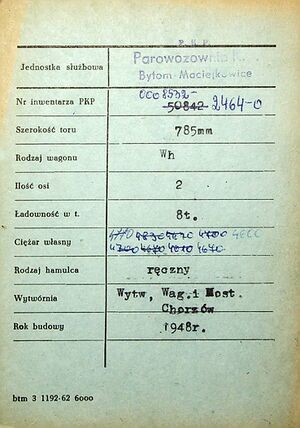 P.K.P.
Parowozownia
Jednostka służbowa
Bytom-Maciejkowice
0008532-
Nr inwentarza PKP 50842 2464-0
Szerokość toru 785mm
Rodzaj wagonu Wh
Ilość osi 2
Ładowność w t. 8t.
4830 4820 4700
Ciężar własny
4700 4670 4610 4640
Rodzaj hamulca ręczny
Wytwórnia Wytw, Wag.i Most.
Chorzów
Rok budowy 1948r.
btm 3 1192-62 6000